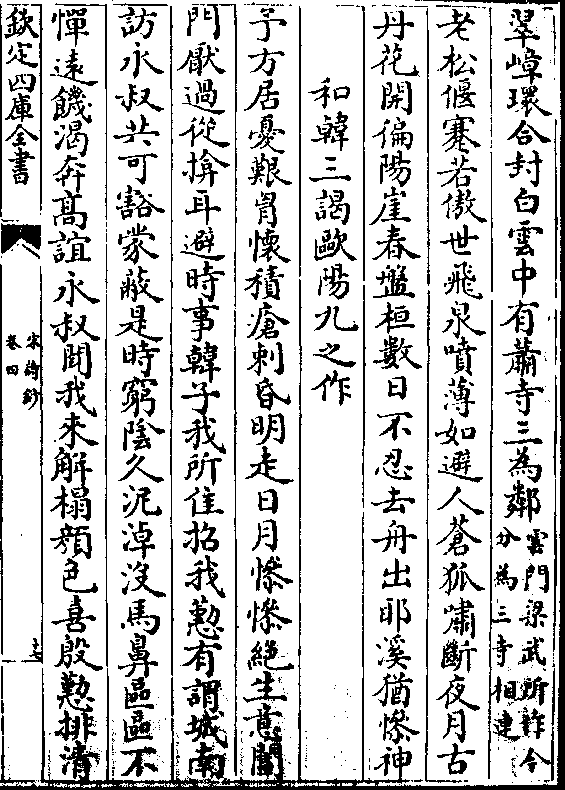 翠嶂環合封白雲中有蕭寺三為鄰雲門梁武所作今分為三寺相連
老松偃蹇若傲世飛泉噴薄如避人蒼狐嘯斷夜月古
丹花開徧陽崖春盤桓數日不忍去舟出耶溪猶慘神
和韓三謁歐陽九之作
予方居憂艱胷懷積瘡刺昏明走日月慘慘絕生意闔
門厭過從揜耳避時事韓子我所住招我懃有謂城南
訪永叔共可豁蒙蔽是時窮陰久泥淖沒馬鼻區區不
憚遠饑渴奔髙誼永叔聞我來解榻顏色喜殷懃排清
欽定四庫全書
宋詩鈔
卷四